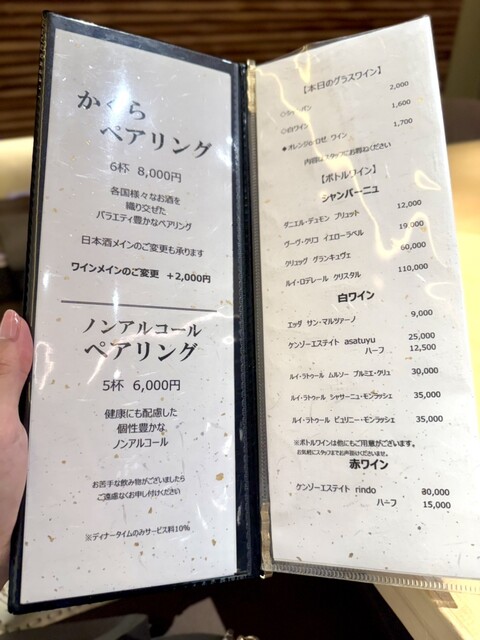 かぐら
ペアリング
6杯 8,000円
各国様々なお酒を
織り交ぜた
バラエティ豊かなペアリング
日本酒メインのご変更も承ります
ワインメインのご変更 +2,000円
ノンアルコール
ペアリング
5杯 6,000円
健康にも配慮した
個性豊かな
ノンアルコール
お苦手な飲み物がございましたら
ご遠慮なくお申し付けください
※ディナータイムのみサービス料10%
【本日のグラスワイン】
2,000
◇白ワイン 1,600
●オレンジo ロゼ ワイン 1,700
内容はスタッフにお尋ねください
【ボトルワイン】
シャンパーニュ
ダニエル・デュモン ブリュット 12,000
ヴーヴ・クリコ イエローラベル 19,000
クリュッグ グランキュヴェ 60,000
ルイ・ロデレール クリスタル 110,000
白ワイン
エッダ サン・マルツァーノ 9,000
ケンゾーエステイト asatuyu 25,000
ハーフ 12,500
ルイ・ラトゥール ムルソー プルミエ・クリュ 30,000
ルイ・ラトゥール シャサーニュ・モンラッシェ 35,000
ルイ・ラトゥール ピュリニー・モンラッシェ 35,000
※ボトルワインは他にもご用意がございます。
お気軽にスタッフまでお声掛けくださいませ。
赤ワイン
ケンゾーエステイト rindo 30,000
ハーフ 15,000